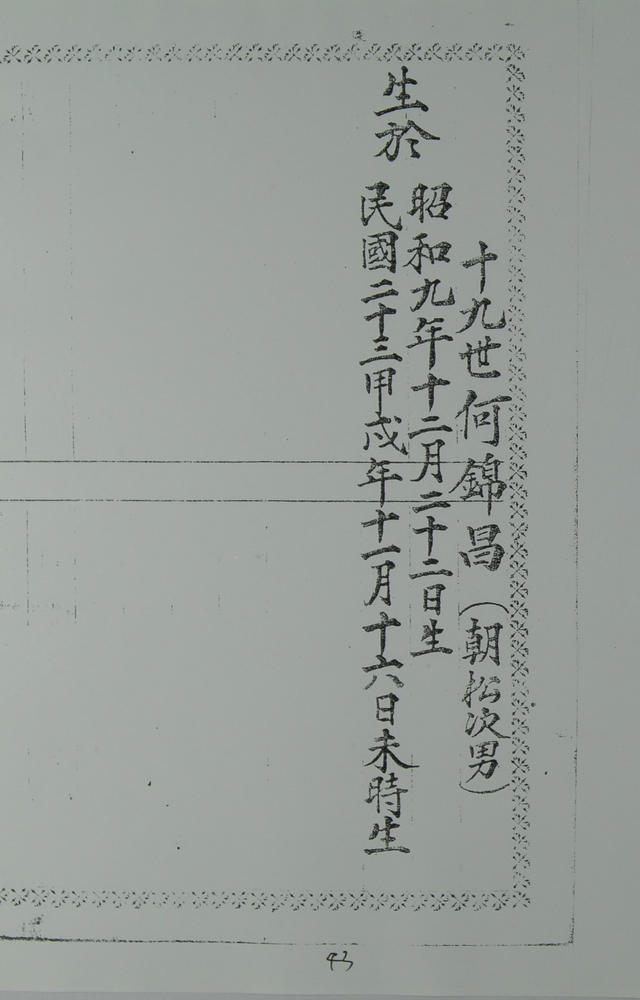 十九世何錦昌(朝松次男)
生於
昭和九年十二月二十二日生
民國二十三甲戌年十一月十六日未時生
43